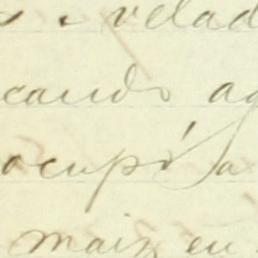 velad
cando ag
ocupó la
maiz en